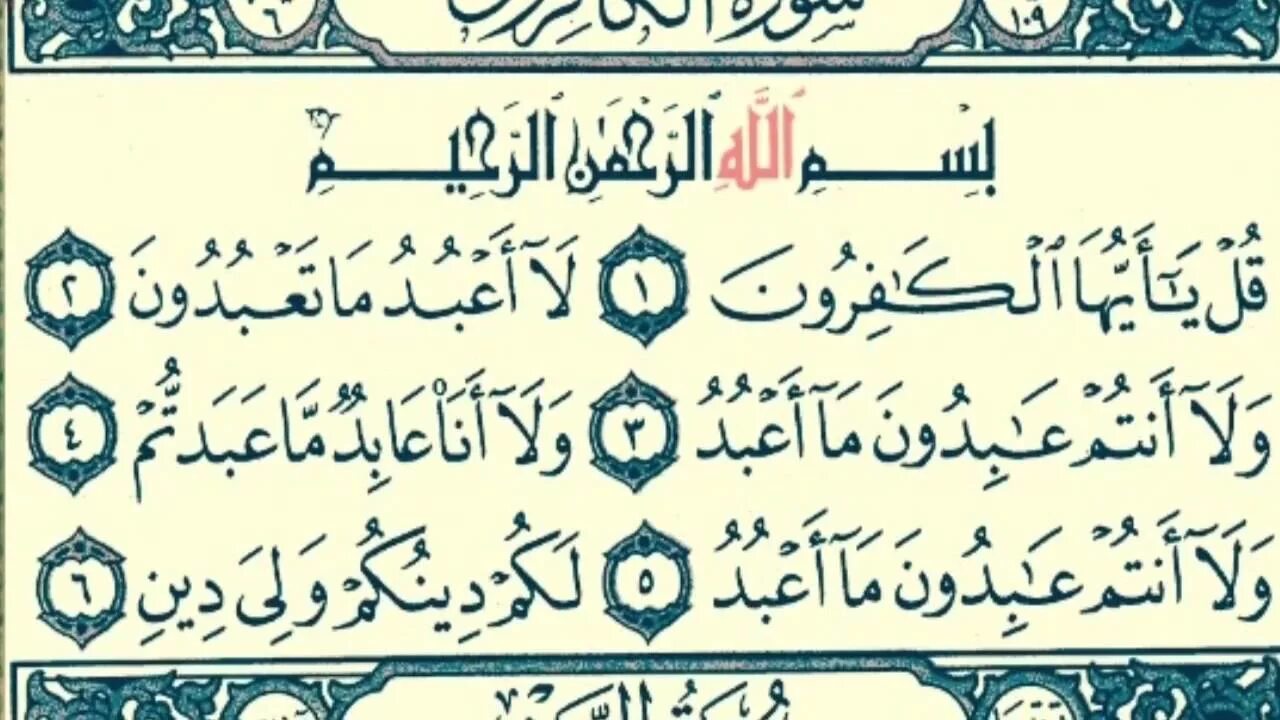 سورة الكافرون
٦ ١٠٩
بِسْمِ اللَّهِ الرَّحْمَٰنِ الرَّحِيمِ
قُلْ يَٰٓأَيُّهَا ٱلْكَٰفِرُونَ ١ لَآ أَعْبُدُ مَا تَعْبُدُونَ ٢
وَلَآ أَنتُمْ عَٰبِدُونَ مَآ أَعْبُدُ ٣ وَلَآ أَنَا۠ عَابِدٌ مَّا عَبَدتُّمْ ٤
وَلَآ أَنتُمْ عَٰبِدُونَ مَآ أَعْبُدُ ٥ لَكُمْ دِينُكُمْ وَلِيَ دِينِ ٦